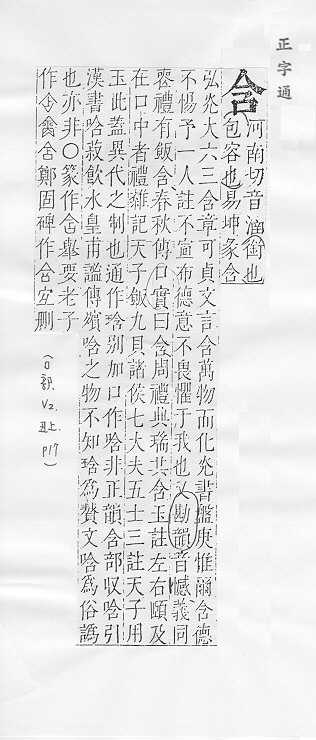 正字通
含
河南切音涵銜也
包容也易坤彖含
弘光大六三含章可貞文言含萬物而化光書盤庚惟爾含德
不惕予一人註不宣布德意不畏懼于我也又勘韻音憾義同
喪禮有飯含春秋傳口實曰含周禮典瑞共含玉註左右頤及
在口中者禮雜記天子飯九貝諸侯七大夫五士三註天子用
玉此蓋異代之制也通作琀別加口作唅非正韻含部収唅引
漢書唅菽飲水皇甫謐傳殯唅之物不知琀為賛文唅為俗譌
也亦非○篆作含舉要老子
作含禽含鄭固碑作含宜刪
(口部. V2. 丑上. p17)